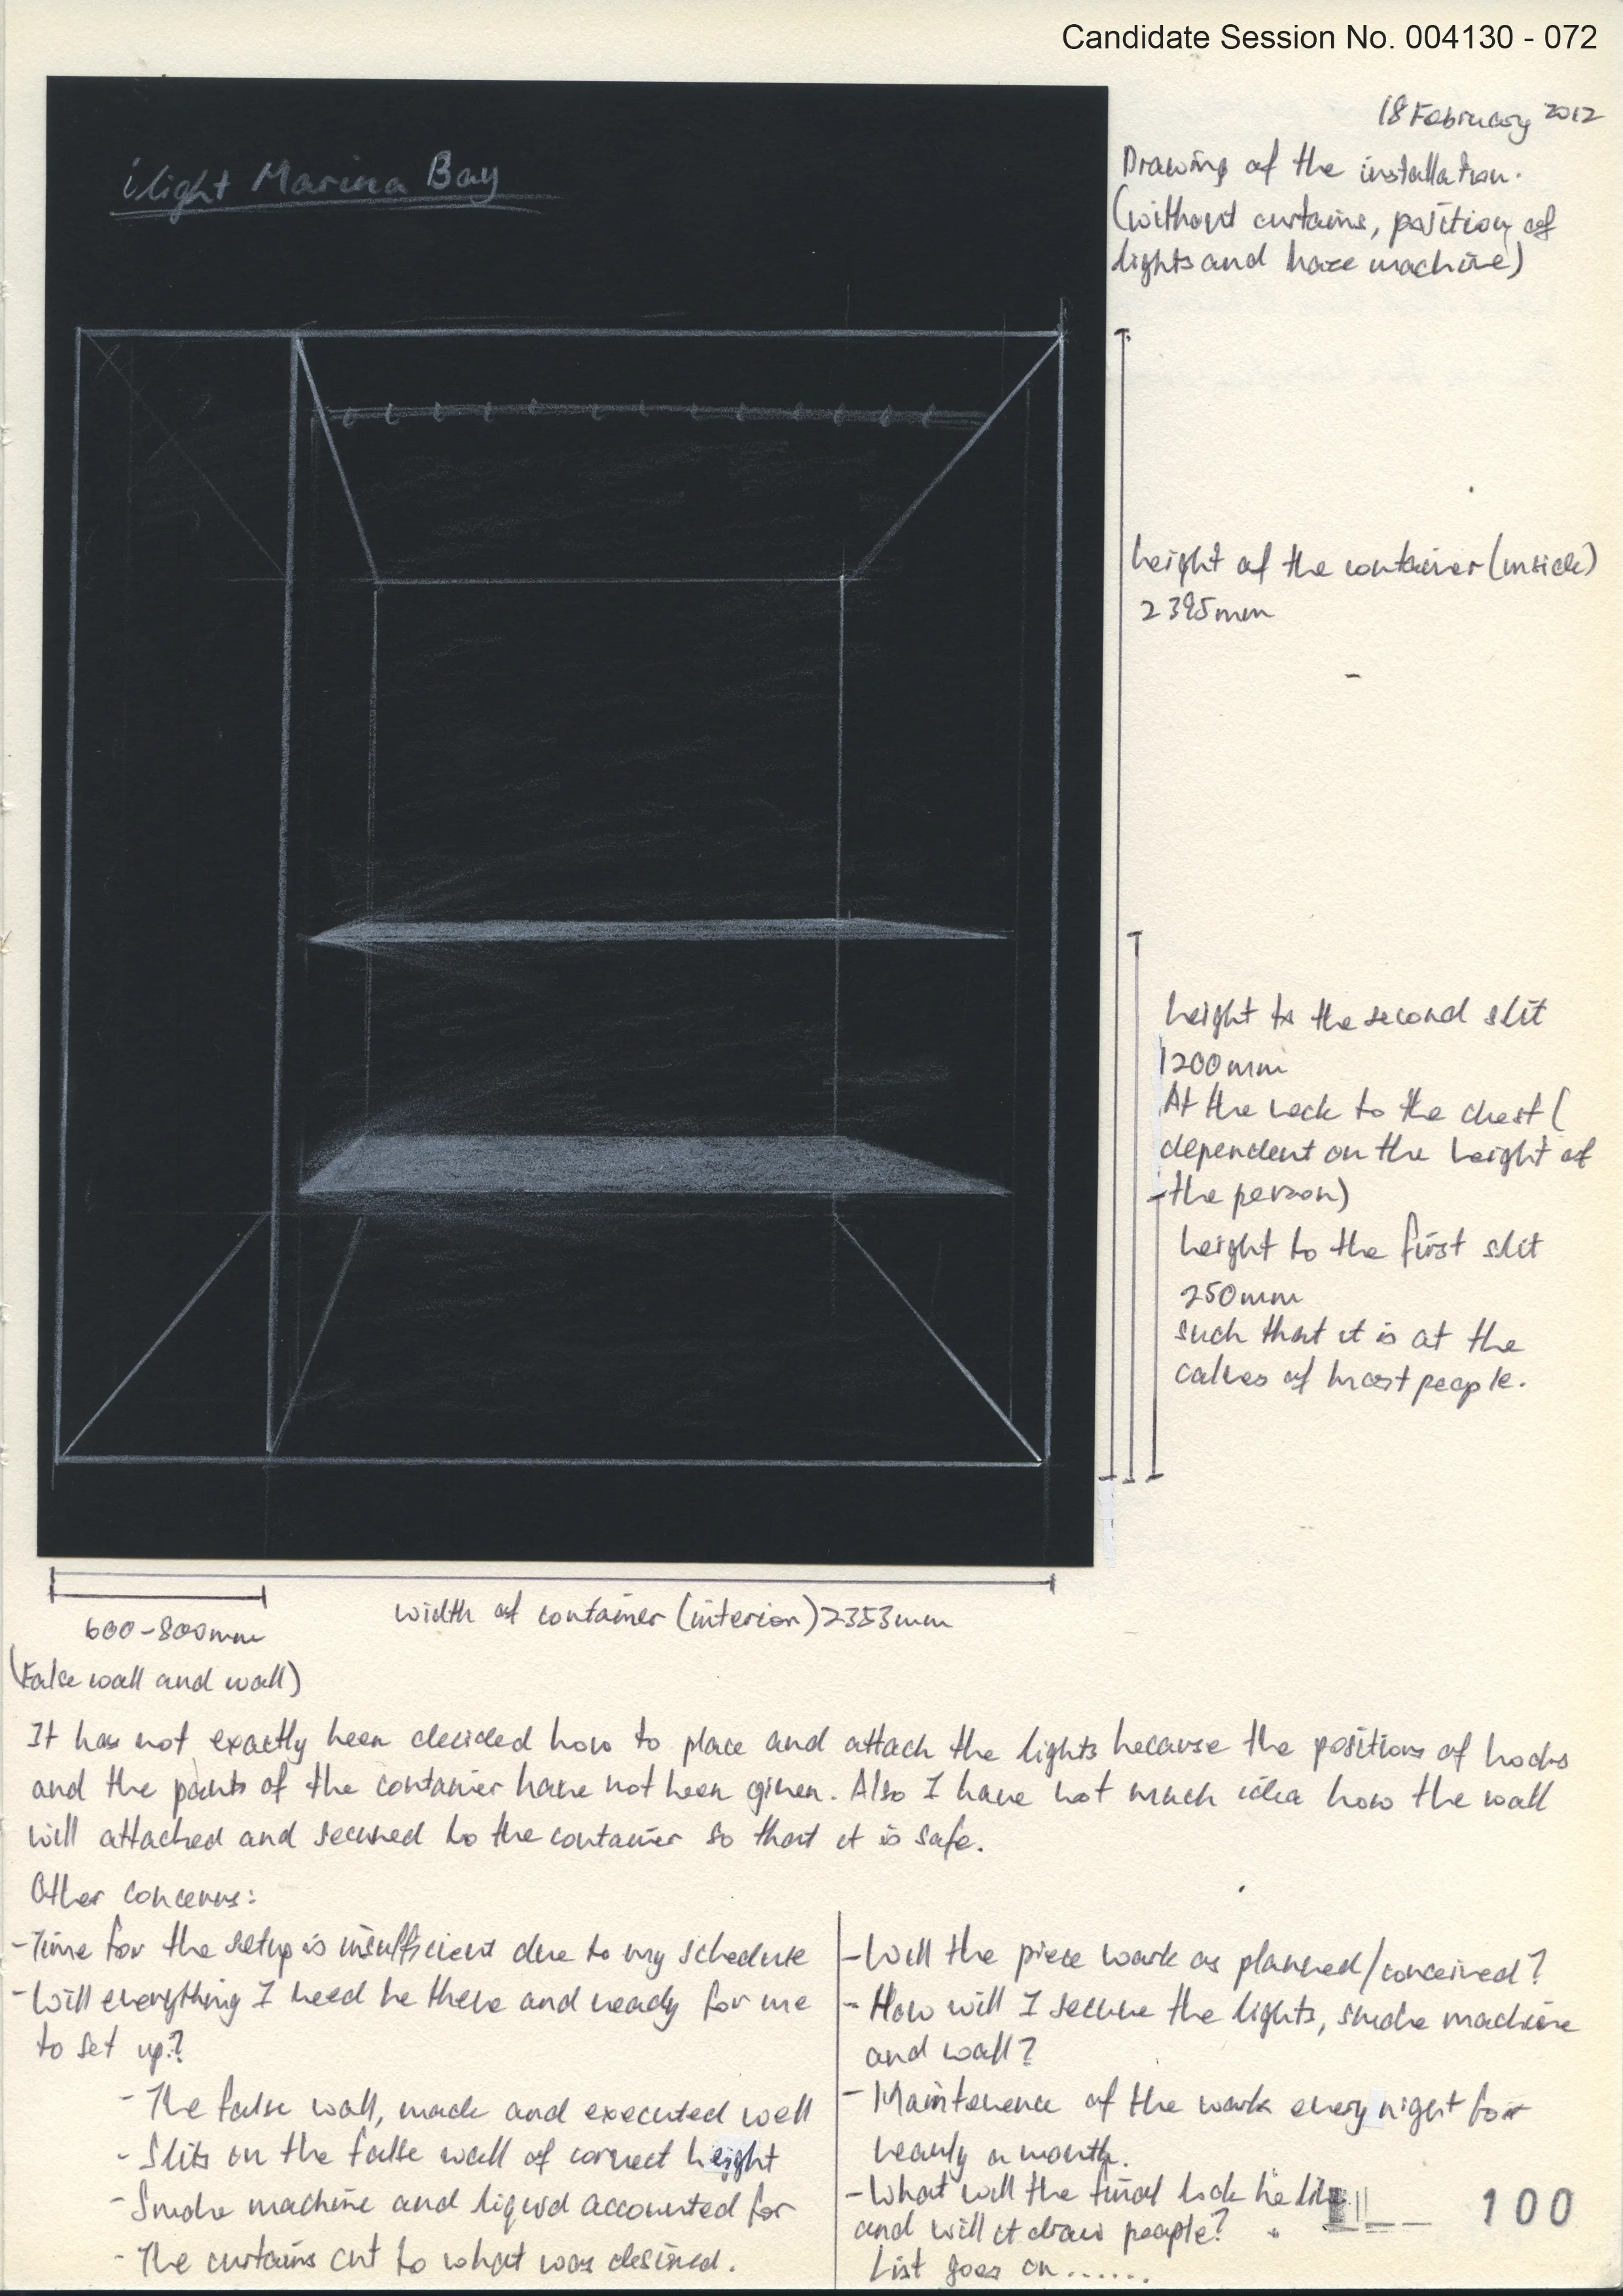 Candidate Session No. 004130 - 072
18 February 2012
ilight Marina Bay
Drawing of the installation.
(without curtains, position of
lights and haze machine)
height of the container (inside)
2395mm
height to the second slit
1200mm
At the neck to the chest (
dependent on the height of
the person)
height to the first slit
250mm
such that it is at the
calves of most people.
600-800mm
(False wall and wall)
width of container (interior) 2353mm
It has not exactly been decided how to place and attach the lights because the positions of hooks
and the points of the container have not been given. Also I have not much idea how the wall
will attached and secured to the container so that it is safe.
Other concerns:
-Time for the setup is insufficient due to my schedule
-Will everything I need be there and ready for me
to set up?
- The false wall, made and executed well
- Slits on the false wall of correct height
- Smoke machine and liquid accounted for
- The curtains cut to what was desired.
-Will the piece work as planned/conceived?
- How will I secure the lights, smoke machine
and wall?
- Maintenence of the work every night for
nearly a month.
-What will the final look be like
and will it draw people?
List goes on.......
100